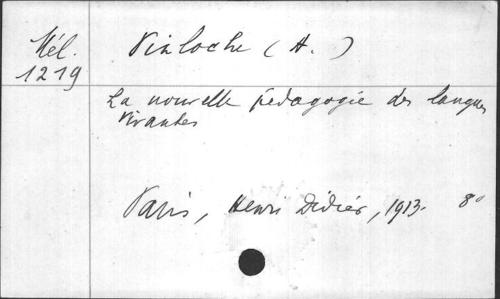 Mél.
1219
Pinloche (A.)
La nouvelle pédagogie des langues
vivantes
Paris, Henri Didier, 1913. 8°